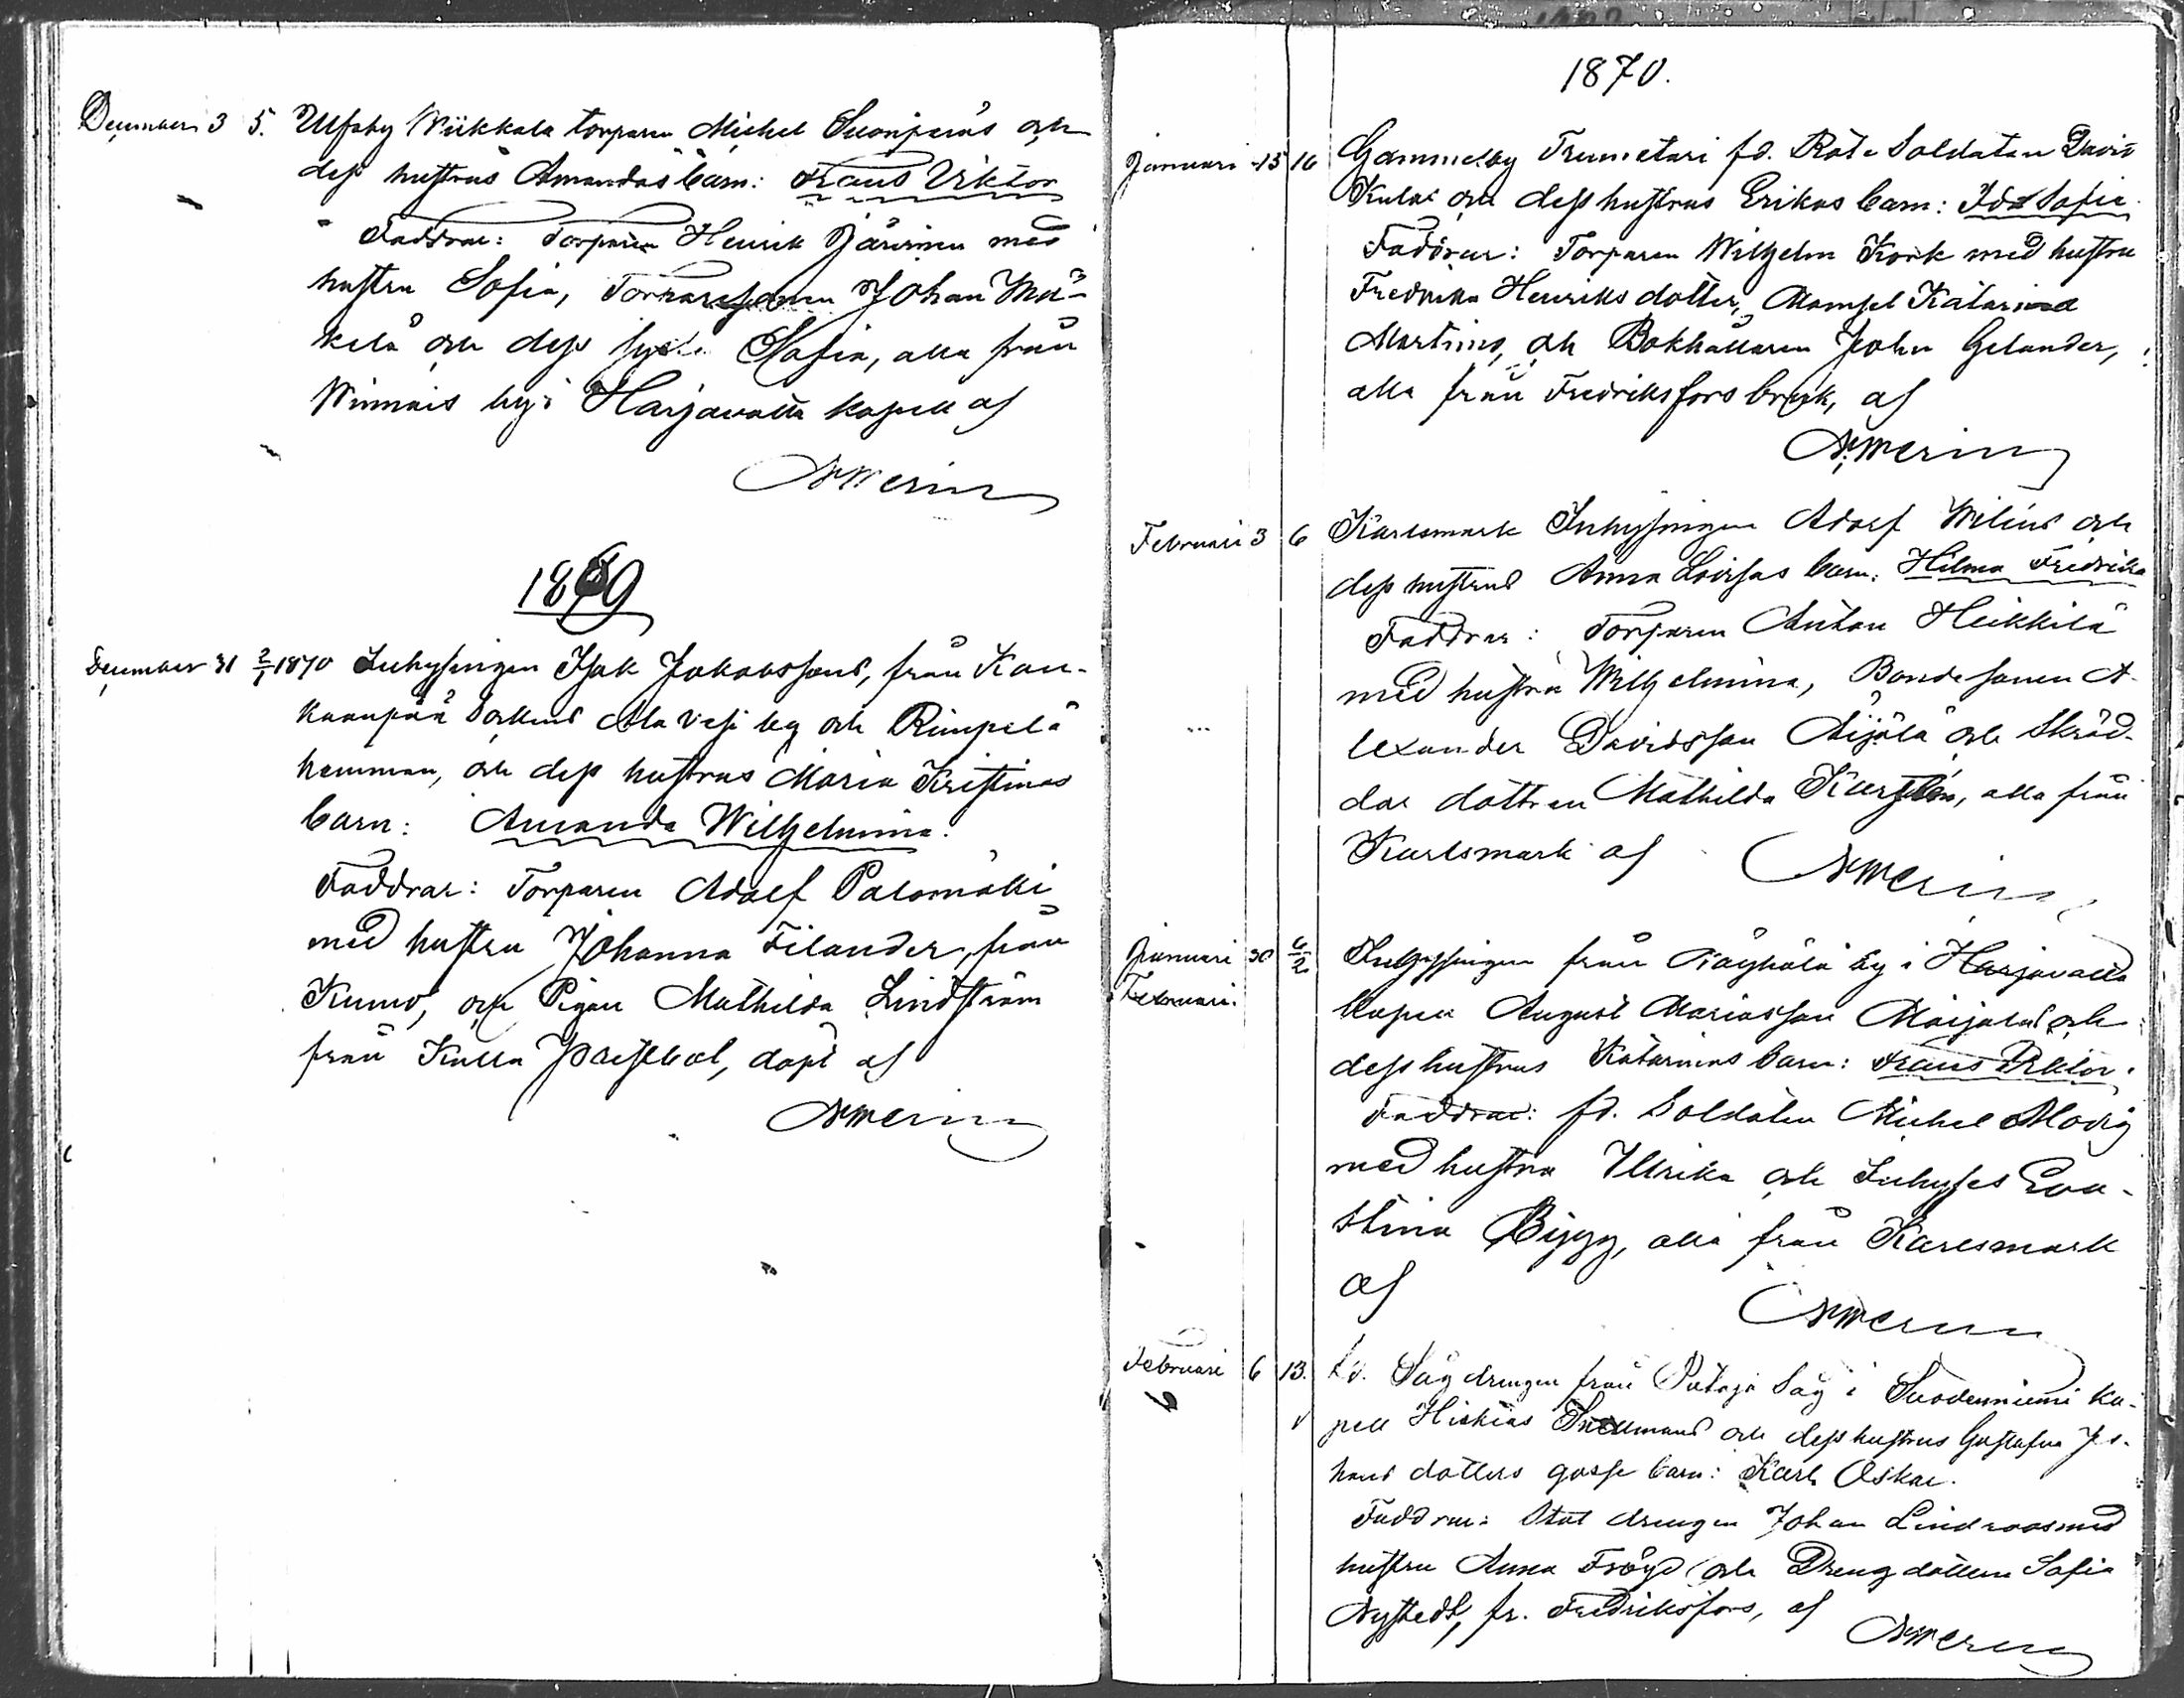 December 3 5. Ulfsby Wiikkala torparen Michel Suonperäs och
dess hustrus Amandas barn: Frans Viktor
Faddrar: Torparen Henrik Järvinen med
hustru Sofia, Torparesonen Johan Mä-
kelä och dess Sofia, alla från
Winnais by i Harjavalta kapell af
1869
December 31 2/1 1870 Inhysingen Isak Jakobssons, från Kan-
kaanpää sockens Alavesi by och Rimpelä
hemman, och dess hustrus Maria Kristinas
barn: Amanda Wilhelmina.
Faddrar: Torparen Adolf Palomäki
med hustru Johanna Filander, från
Kumo, och Pigan Mathilda Lindström
från Kulla, döpt af
1870.
Januari 15 16 Gammelby Trumetari fd. Rote Soldaten David
och dess hustrus Erikas barn: Ida Sofia.
Faddrar: Torparen Wilhelm Kork med hustru
Fredrika Henriksdotter, Mamsel Katarina
Martins, och Bokhållaren John Gelander,
alla från Fredriksfors bruk, af
Februari 3 6 Karlsmark Inhysingen Adolf och
dess hustrus Anna Lovisas barn: Hilma Fredrika
Faddrar: Torparen Anton Heikkilä
med hustru Wilhelmina, Bondesonen A-
lexander Davidsson Äijälä och Skräd-
dar dottren Mathilda, alla från
Karlsmark af
Januari 30 6/2 Inhysingen från by i Harjavalta
Februari.
kapell August Mariasson och
dess hustrus Katarinas barn: Frans Viktor.
Faddrar: fd. Soldaten Michel Modig
med hustru Ulrika och Inhyses Eva-
Stina Bigg, alla från Karlsmark
af
Februari 6 13. fd. Såg drengen från Såg i Suodenniemi ka-
6
pell Hiskias Snellmans och dess hustrus Gustafva Jo-
hans dotters gosse barn: Karl Oskar.
Faddrar: Stat drengen Johan Lindroos med
hustru Anna Fröjd och Dreng dottern Sofia
Nystedt, fr. Fredriksfors, af